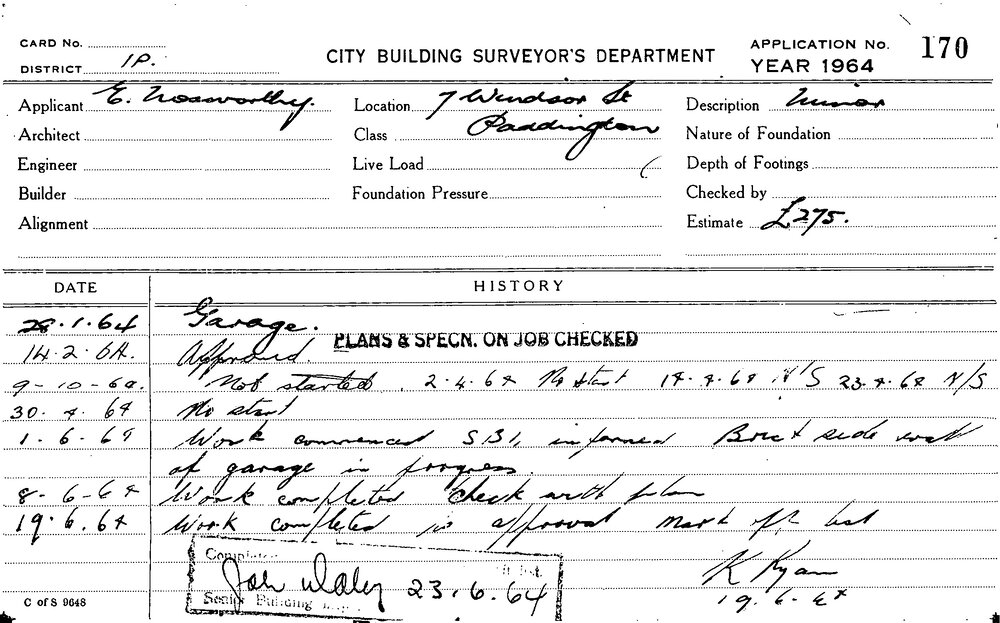 CARD No.
DISTRICT 1P.
CITY BUILDING SURVEYOR'S DEPARTMENT
APPLICATION No. 170
YEAR 1964
Applicant E. Nosworthy. Location 7 Windsor St Description Minor
Architect Class Paddington Nature of Foundation
Engineer Live Load Depth of Footings
Builder Foundation Pressure Checked by
Alignment Estimate £275.
DATE HISTORY
28.1.64 Garage.
PLANS & SPECN. ON JOB CHECKED
14.2.64. Approved.
Not started. 2.4.64 No start 14.4.64 N/S 23.4.64 N/S
30.4.64 No start
1.6.64 Work commenced informed Brick side wall
of garage in progress.
8-6-64 Work completed check with plan
19.6.64 Work completed approval mark off list
K Ryan
19.6.64
23.6.64
Senior Building
C of S 9648